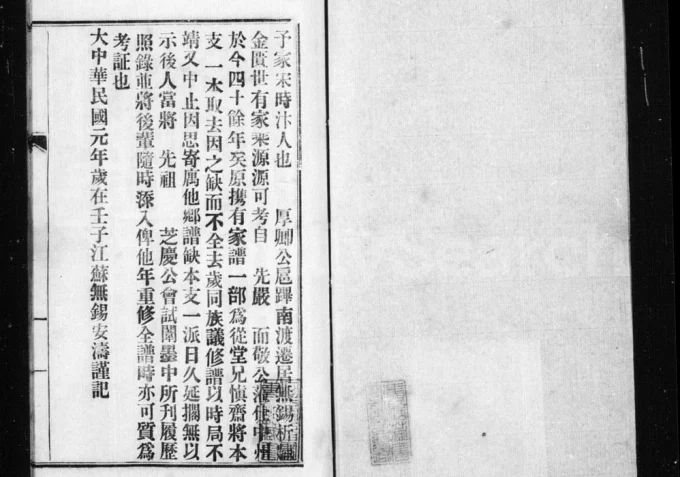 予家宋時汴人也　厚卿公扈蹕南渡遷居無錫析
金匱世有家乘源源可考自　先嚴　面敬公　中州
於今四十餘年矣原携有家譜一部為從堂兄慎齋將本
支一本取去因之缺而不全去歲同族議修譜以時局不
靖又中止因思寄属他鄉譜缺本支一派日久延擱無以
示後人當將　先祖　芝慶公會試闈墨中所刊履歷
照錄並將後輩隨時添入俾他年重修全譜時亦可質為
考証也
大中華民國元年歲在壬子江蘇無錫安濤謹記